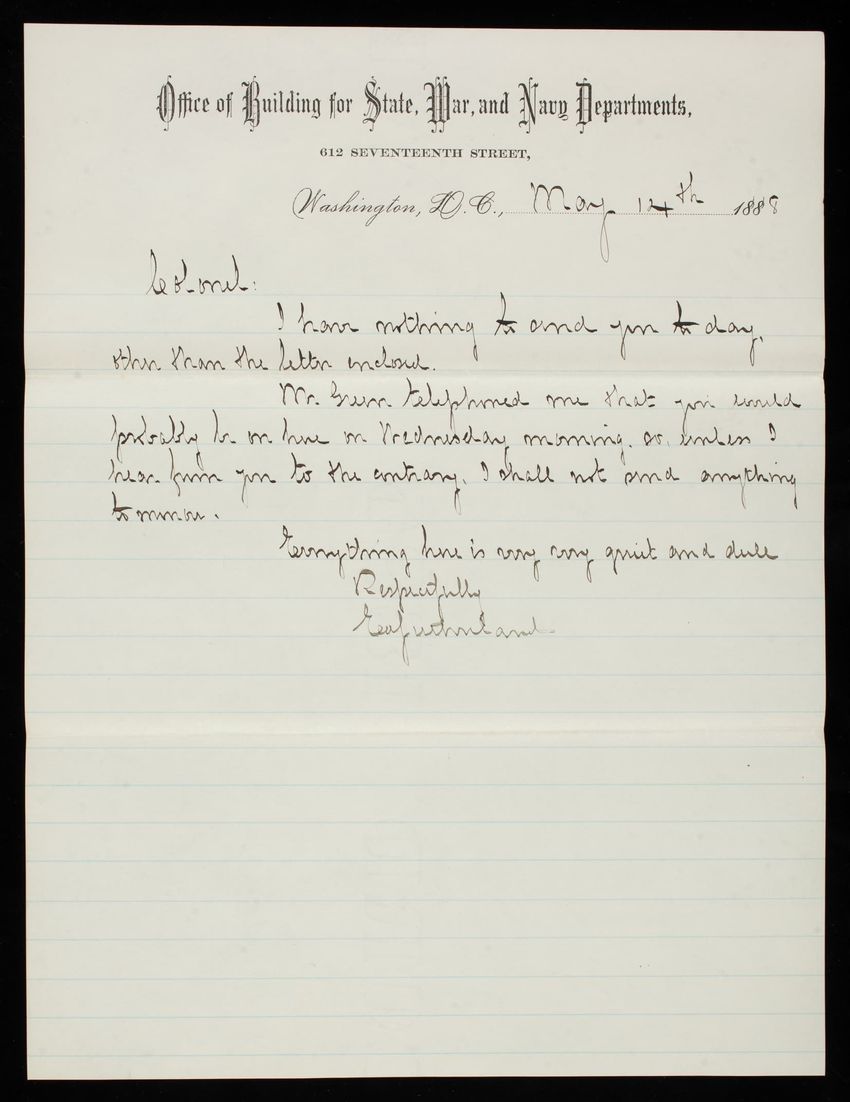 Office of Building for State, War, and Navy Departments,
612 SEVENTEENTH STREET,
Washington, D.C., May 14th 1888
Colonel:
I have nothing to send you to day,
other than the letter enclosed.
Mr. Green telephoned me that you would
probably be on here on Wednesday morning, so, unless I
hear from you to the contrary, I shall not send anything
tomorrow.
Everything here is very very quiet and dull
Respectfully